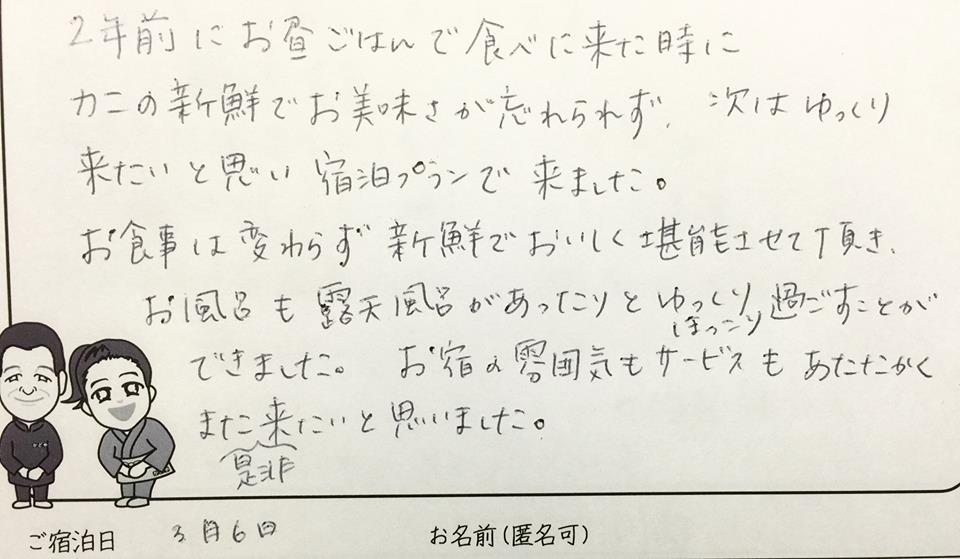 2年前にお昼ごはんで食べに来た時に
カニの新鮮でお美味さが忘れられず、次はゆっくり
来たいと思い宿泊プランで来ました。
お食事は変わらず新鮮でおいしく堪能させて頂き、
お風呂も露天風呂があったりとゆっくり過ごすことが
ほっこり
できました。お宿の雰囲気もサービスもあたたかく
また来たいと思いました。
是非
ご宿泊日 3月6日 お名前(匿名可)